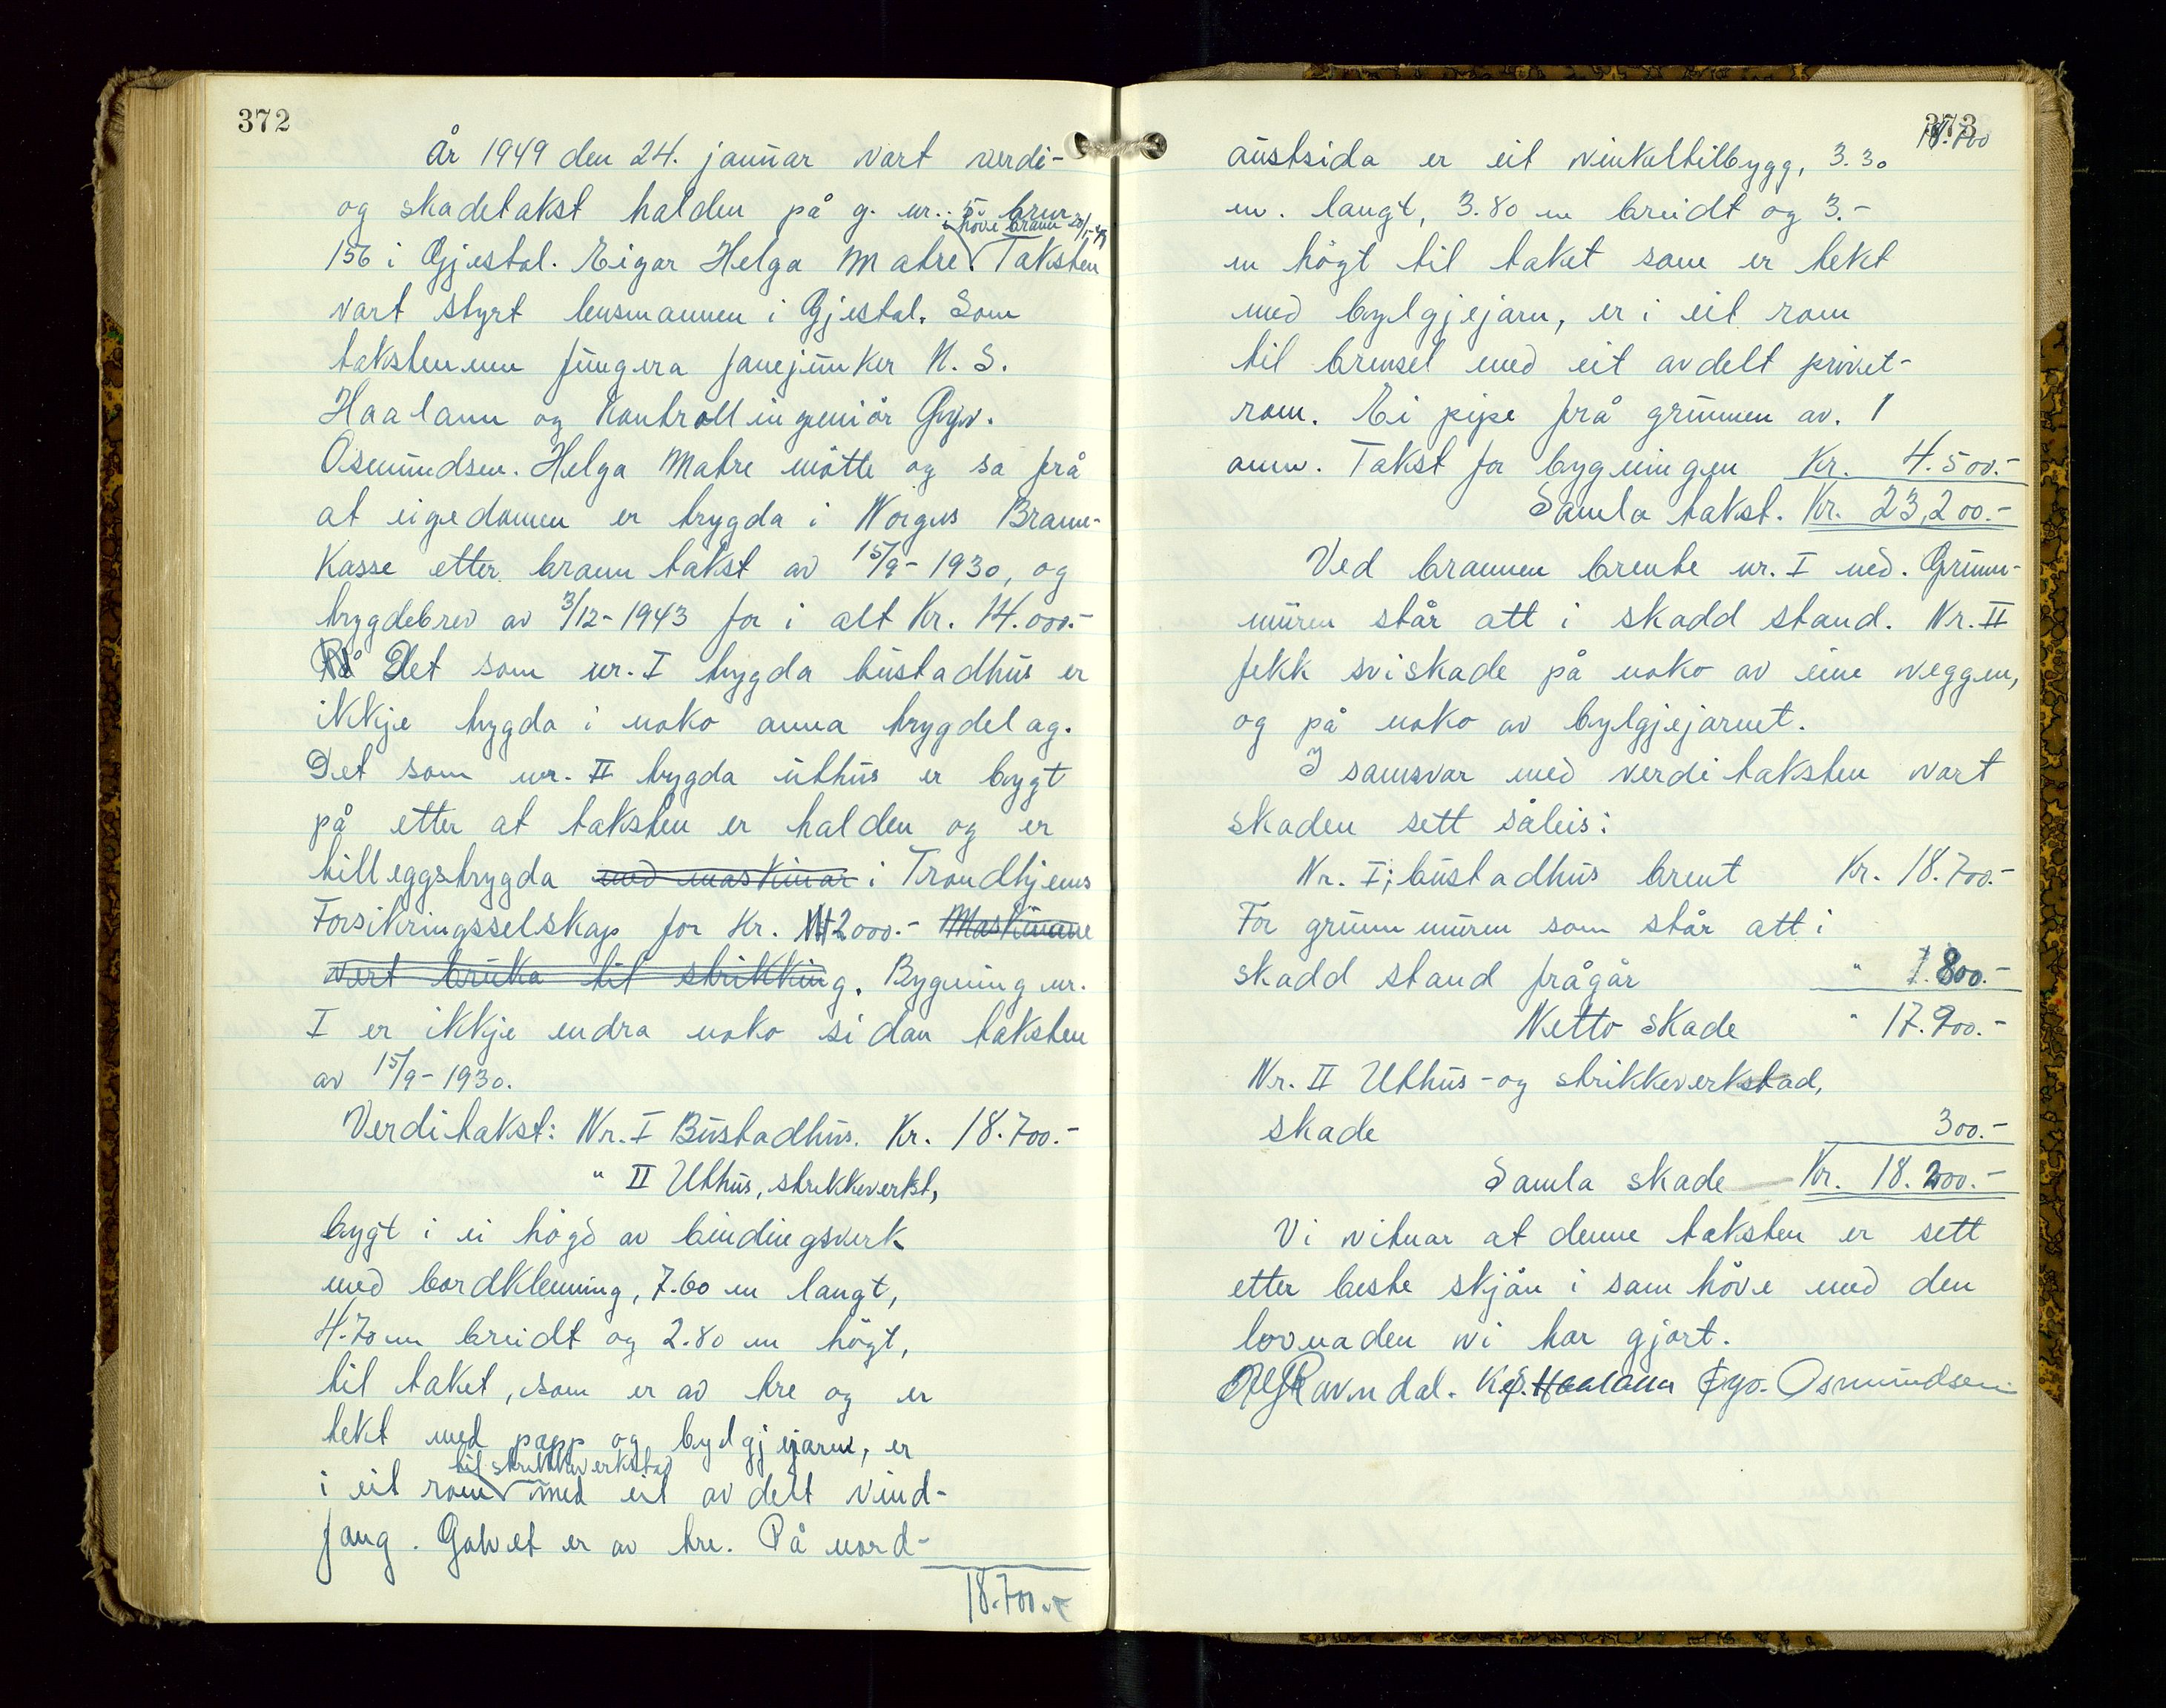 372
År 1949 den 24. januar vart verdi-
og skadetakst halden på g. nr. 5 brnr
i höve brann 20/1-49
156 i Gjestal. Eigar Helga Matre. Taksten
vart styrt lensmannen i Gjestal. Som
takstmenn fungera fanejunker K. S.
Haaland og Kontrollingeniör Gyv.
Osmundsen. Helga Matre mötte og sa frå
at eigedomen er trygda i Norges Brann-
Kasse etter brann takst av 15/9-1930, og
trygdebrev av 3/12-1943 for i alt Kr. 14.000.-
Det som nr. I trygda bustadhus er
ikkje trygda i noko anna trygdelag.
Det som nr. II trygda uthus er bygt
på etter at taksten er halden og er
tilleggstrygda med maskinar i Trondhjems
Forsikringsselskap for Kr. 2000.- Maskinane
vert bruka til strikking. Bygning nr.
I er ikkje endra noko sidan taksten
av 15/9-1930.
Verditakst: Nr. I Bustadhus. Kr. 18.700.-
" II Uthus, strikkeverkst,
bygt i ei högd av bindingsverk
med bordkledning, 7.60 m langt,
4.70 m breidt og 2.80 m högt,
til taket, som er av tre og er
tekt med papp og bylgjejarn, er
til strikkeverkstad
i eit rom med eit avdelt vind-
fang. Golvet er av tre. På nord-
18.700.-
373
18.700
austsida er eit vinkeltilbygg, 3.30
m. langt, 3.80 m breidt og 3.-
m högt til taket som er tekt
med bylgjejarn, er i eit rom
til brensel med eit avdelt privet-
rom. Ei pipe frå grunnen av. 1
omn. Takst for bygningen Kr. 4.500.-
Samla takst. Kr. 23,200.-
Ved brannen brente nr. I ned. Grunn-
muren står att i skadd stand. Nr. II
fekk sviskade på noko av eine veggen,
og på noko av bylgjejarnet.
I samsvar med verditaksten vart
skaden sett såleis:
Nr. I; bustadhus brent Kr. 18.700.-
For grunnmuren som står att i
skadd stand frågår " 800.-
Netto skade " 17.900.-
Nr. II Uthus- og strikkeverkstad,
skade 300.-
Samla skade Kr. 18.200.-
Vi vitnar at denne taksten er sett
etter beste skjön i samhöve med den
lovnaden vi har gjort.
Ravndal. K. S. Haaland Gyv. Osmundsen